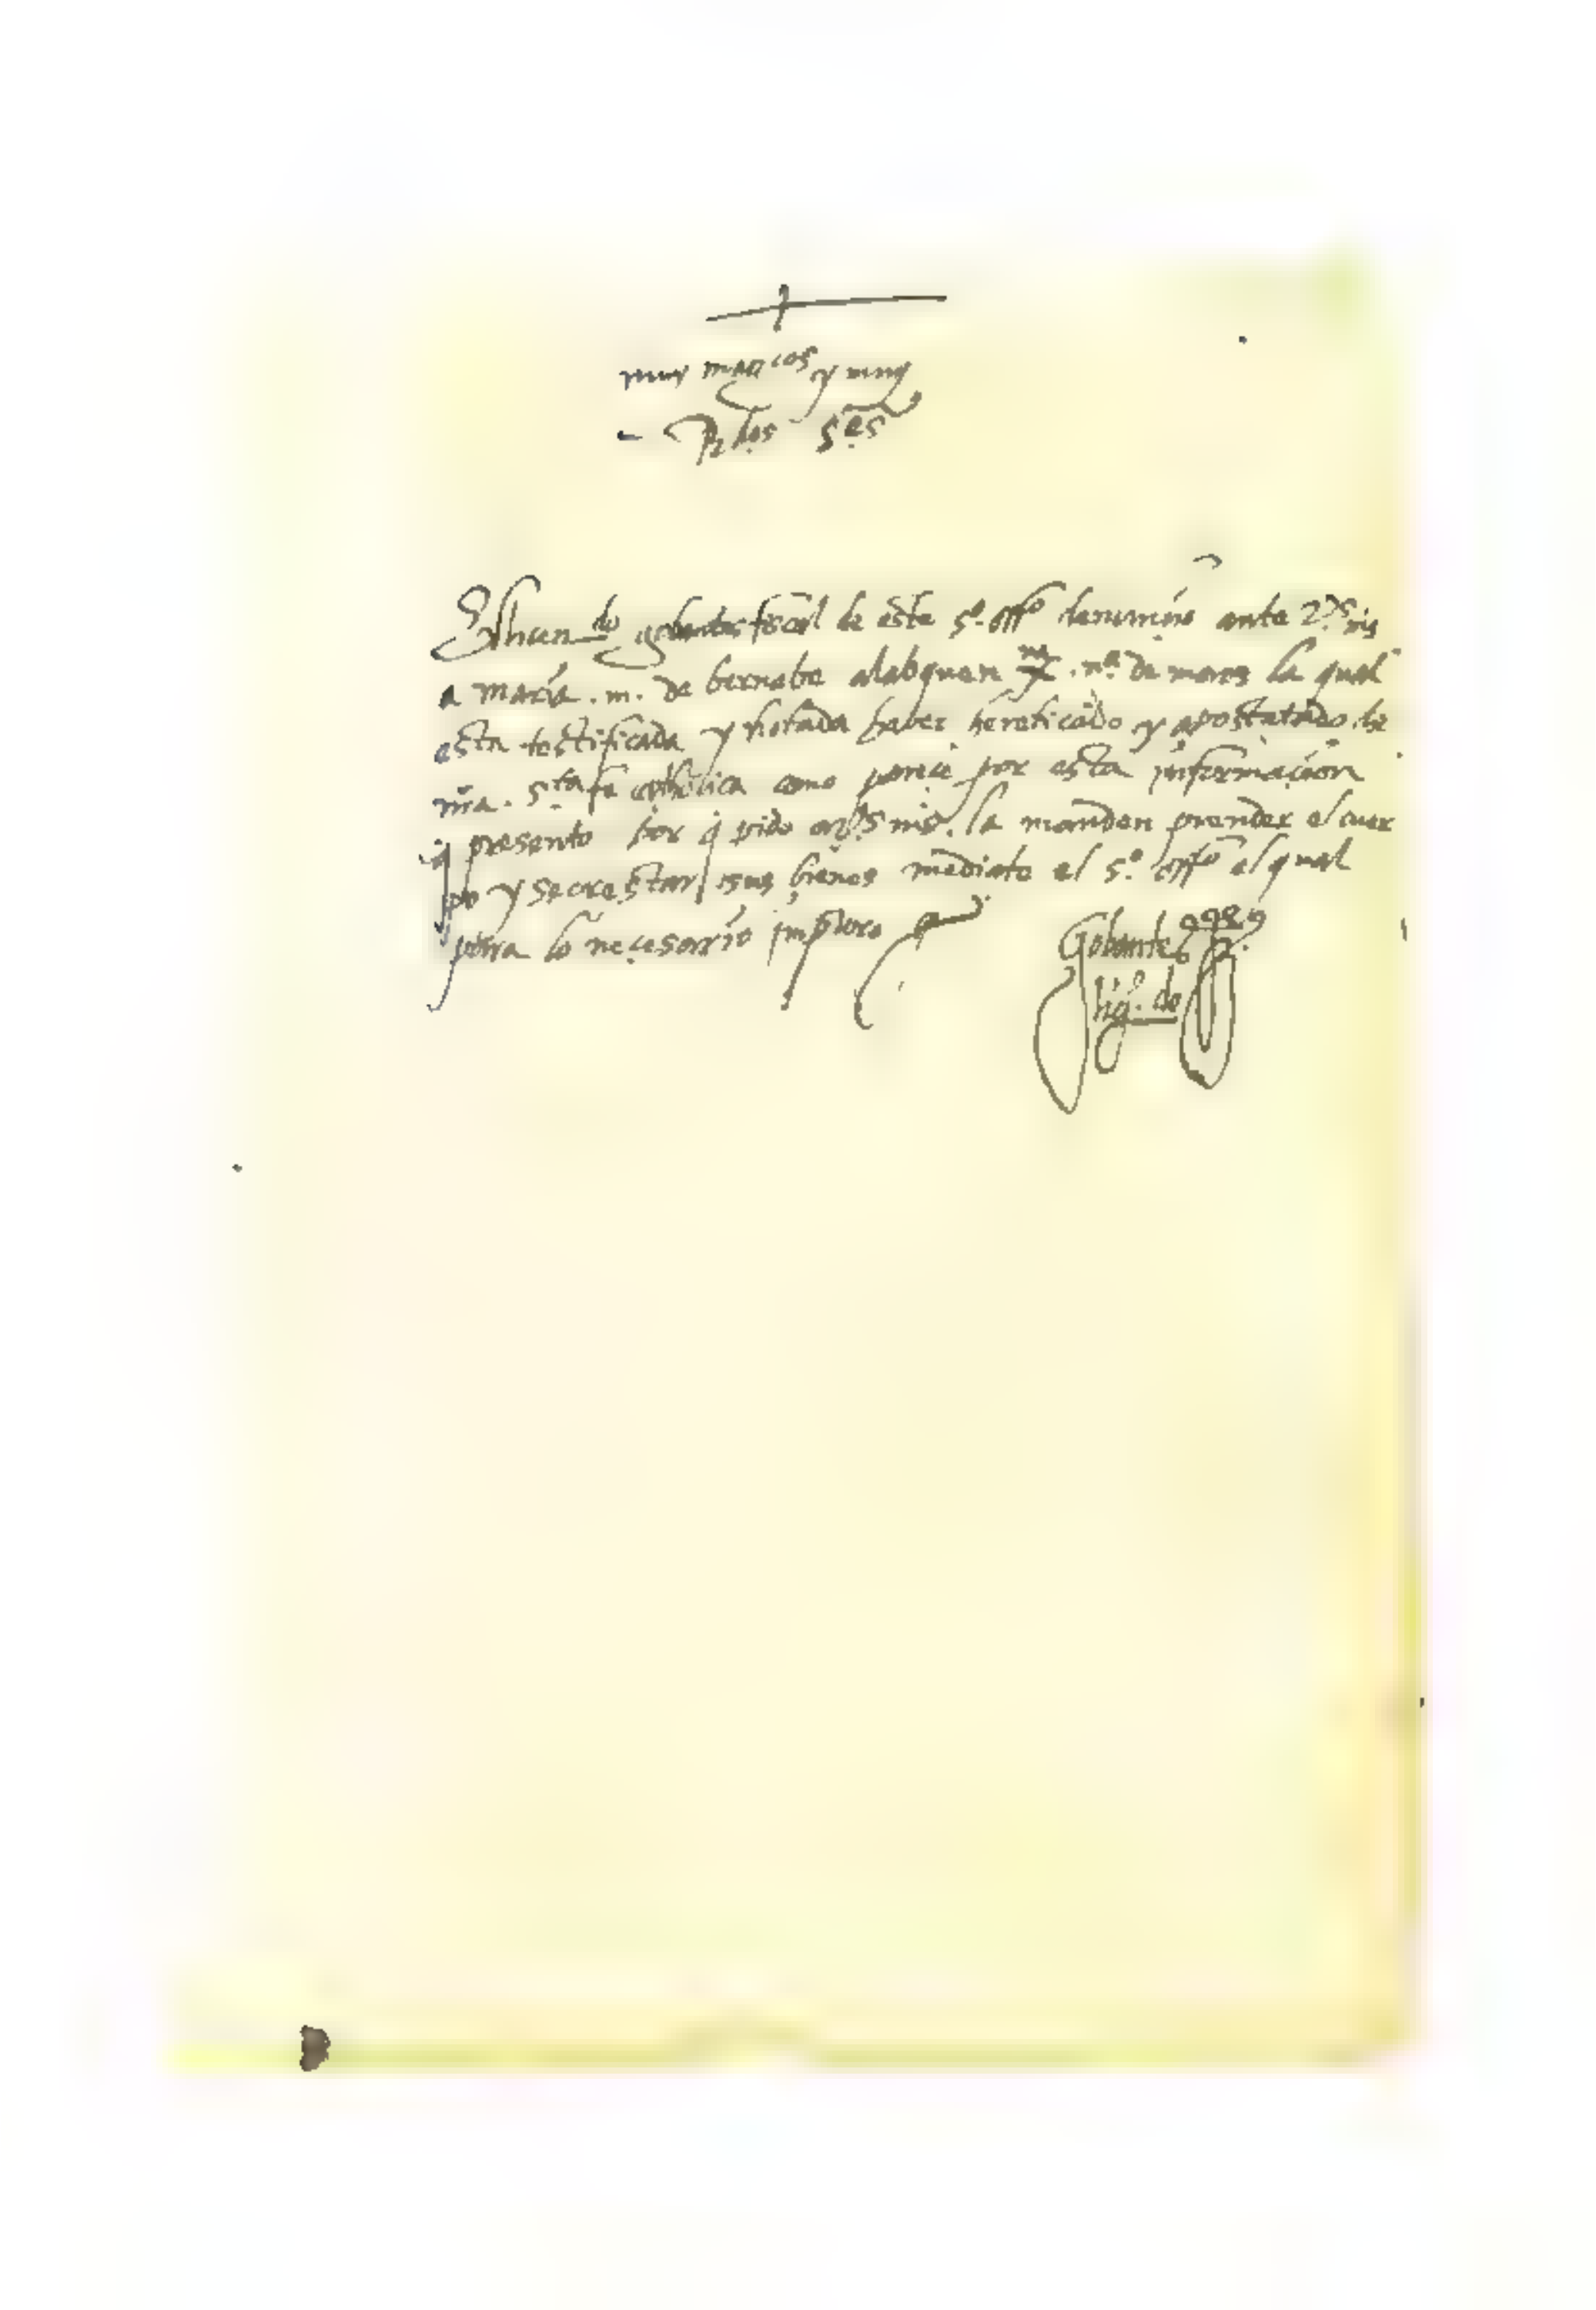 muy mag.cos y muy
Rdos Ses
El licen.do gobantes fiscal de este s.º offº denunçio ante
a maria .m. de bernabe alabquen .nª. de moros la qual
esta testificada y notada haber hereticado y apostatado de
nra. s.ta fe catholica como pareçe por esta informaçion
q presento por q pido a la manden prender el cuer
po y secrestar sus bienes mediãte el s.º offº el qual
para lo neçesario imploro
Gobantes
liçº.do